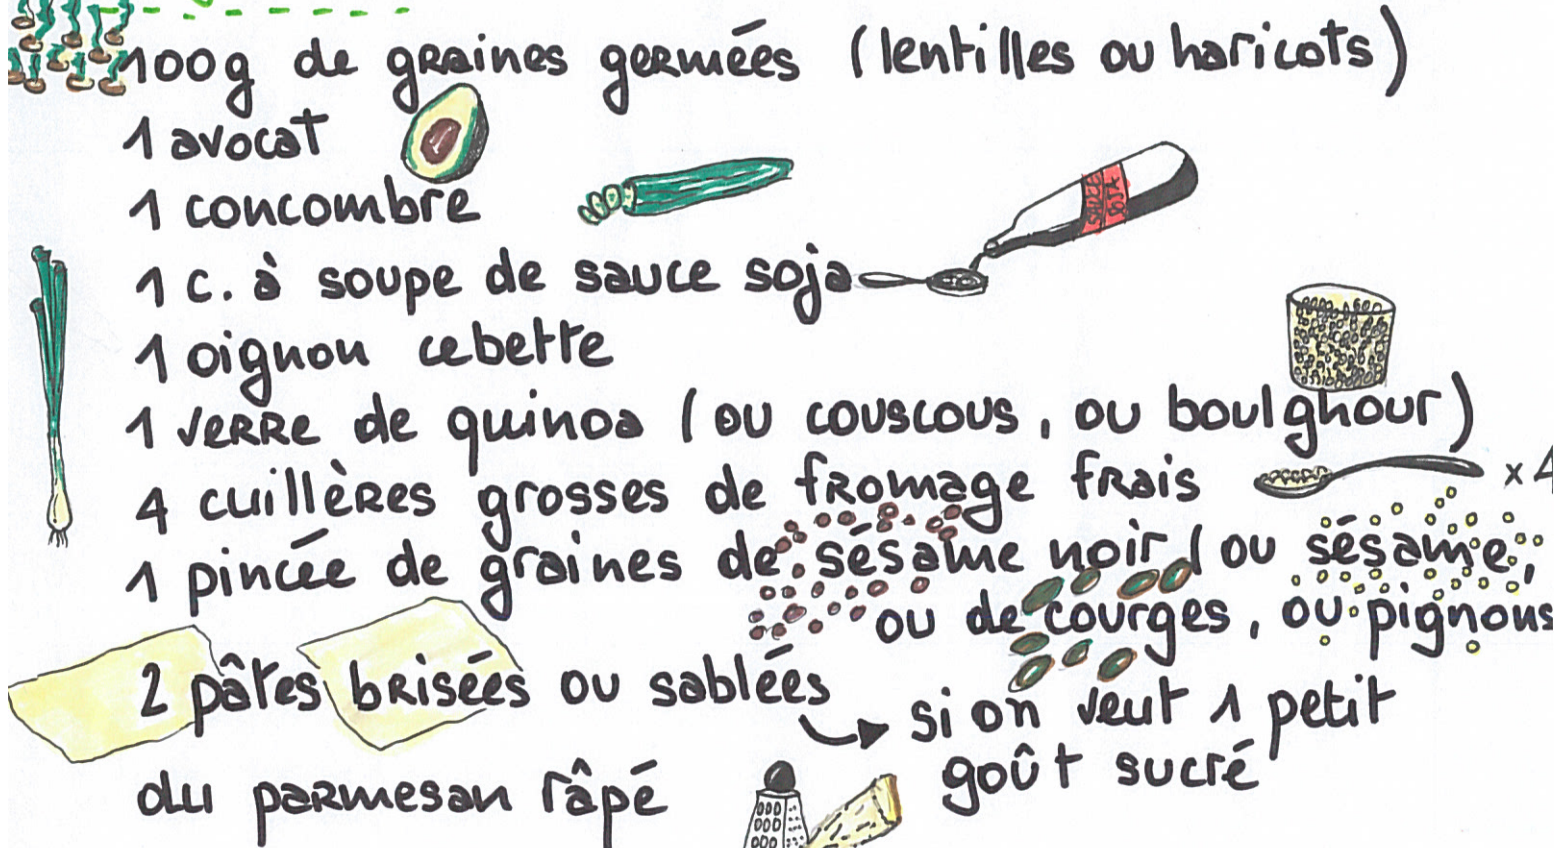 100g de graines germées (lentilles ou haricots)
1 avocat
1 concombre
SAUCE SOJA
1 c. à soupe de sauce soja
1 oignon cebette
1 verre de quinoa (ou couscous, ou boulghour)
4 cuillères grosses de fromage frais x4
1 pincée de graines de sésame noir (ou sésame,
ou de courges, ou pignons
2 pâtes brisées ou sablées
si on veut 1 petit
goût sucré
du parmesan râpé